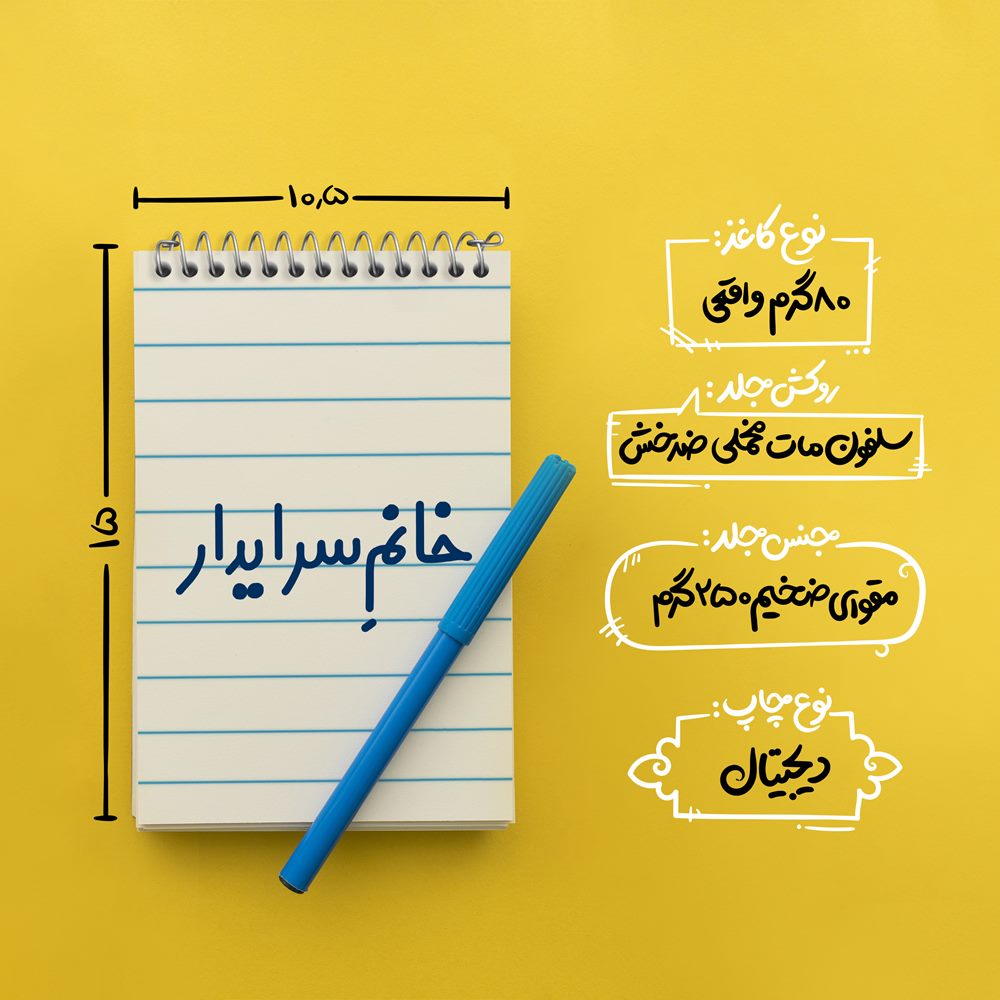 ۱۰٫۵
۱۵
خانمِ سرایدار
نوع کاغذ:
۸۰گرم واقعی
روکش جلد:
سلفون مات مخملی ضدخش
جنس جلد:
مقوای ضخیم ۲۵۰گرم
نوع چاپ:
دیجیتال